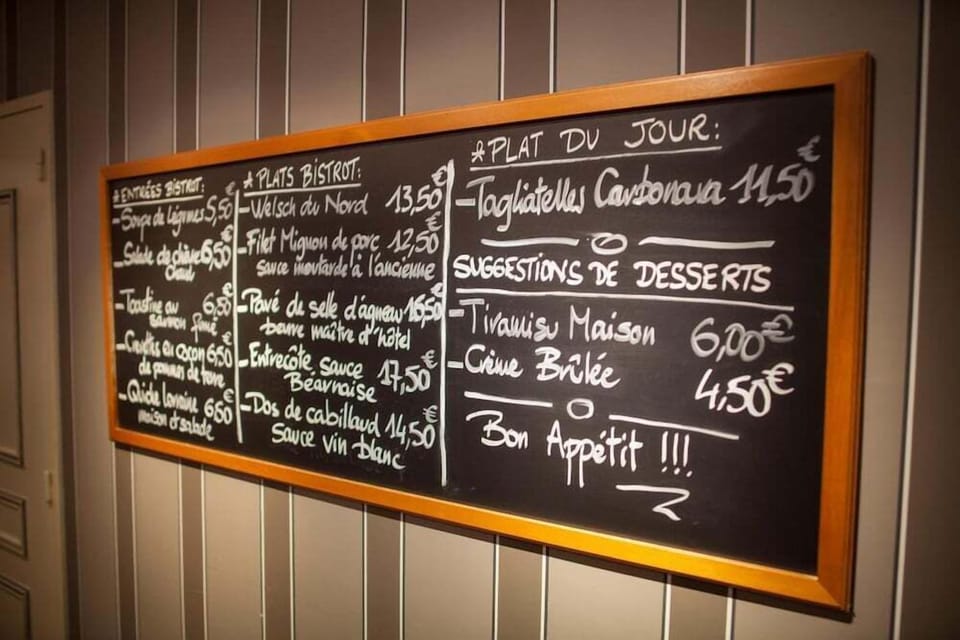 * ENTRÉES BISTROT:
- Soupe de légumes 5,50€
- Salade de chèvre 6,50€
Chaud
- Toastine au 6,50€
saumon fumé
- Crevettes en cocon 6,50€
de pommes de terre
- Quiche lorraine 6,50€
maison et salade
* PLATS BISTROT:
- Welsch du Nord 13,50€
- Filet Mignon de porc 12,50€
sauce moutarde à l'ancienne
- Pavé de selle d'agneau 16,50€
beurre maître d'hôtel
- Entrecôte sauce 17,50€
Béarnaise
- Dos de cabillaud 14,50€
Sauce vin blanc
* PLAT DU JOUR:
- Tagliatelles Carbonara 11,50€
SUGGESTIONS DE DESSERTS
- Tiramisu Maison 6,00€
- Crème Brûlée 4,50€
Bon Appétit !!!